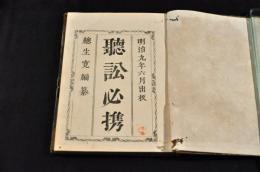 明治九年六月出板
聽訟必携
總生寛編纂